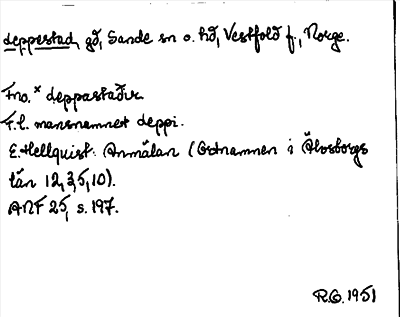 Deppestad, gd, Sande sn o. hd, Vestfold f., Norge.
Fno. * deppastaðir
T.l. mansnamnet deppi.
E. Hellquist: Anmälan (Ortnamnen i Älvsborgs
län 12, 3, 5, 10).
ANF 25, s. 197.
R.G. 1951